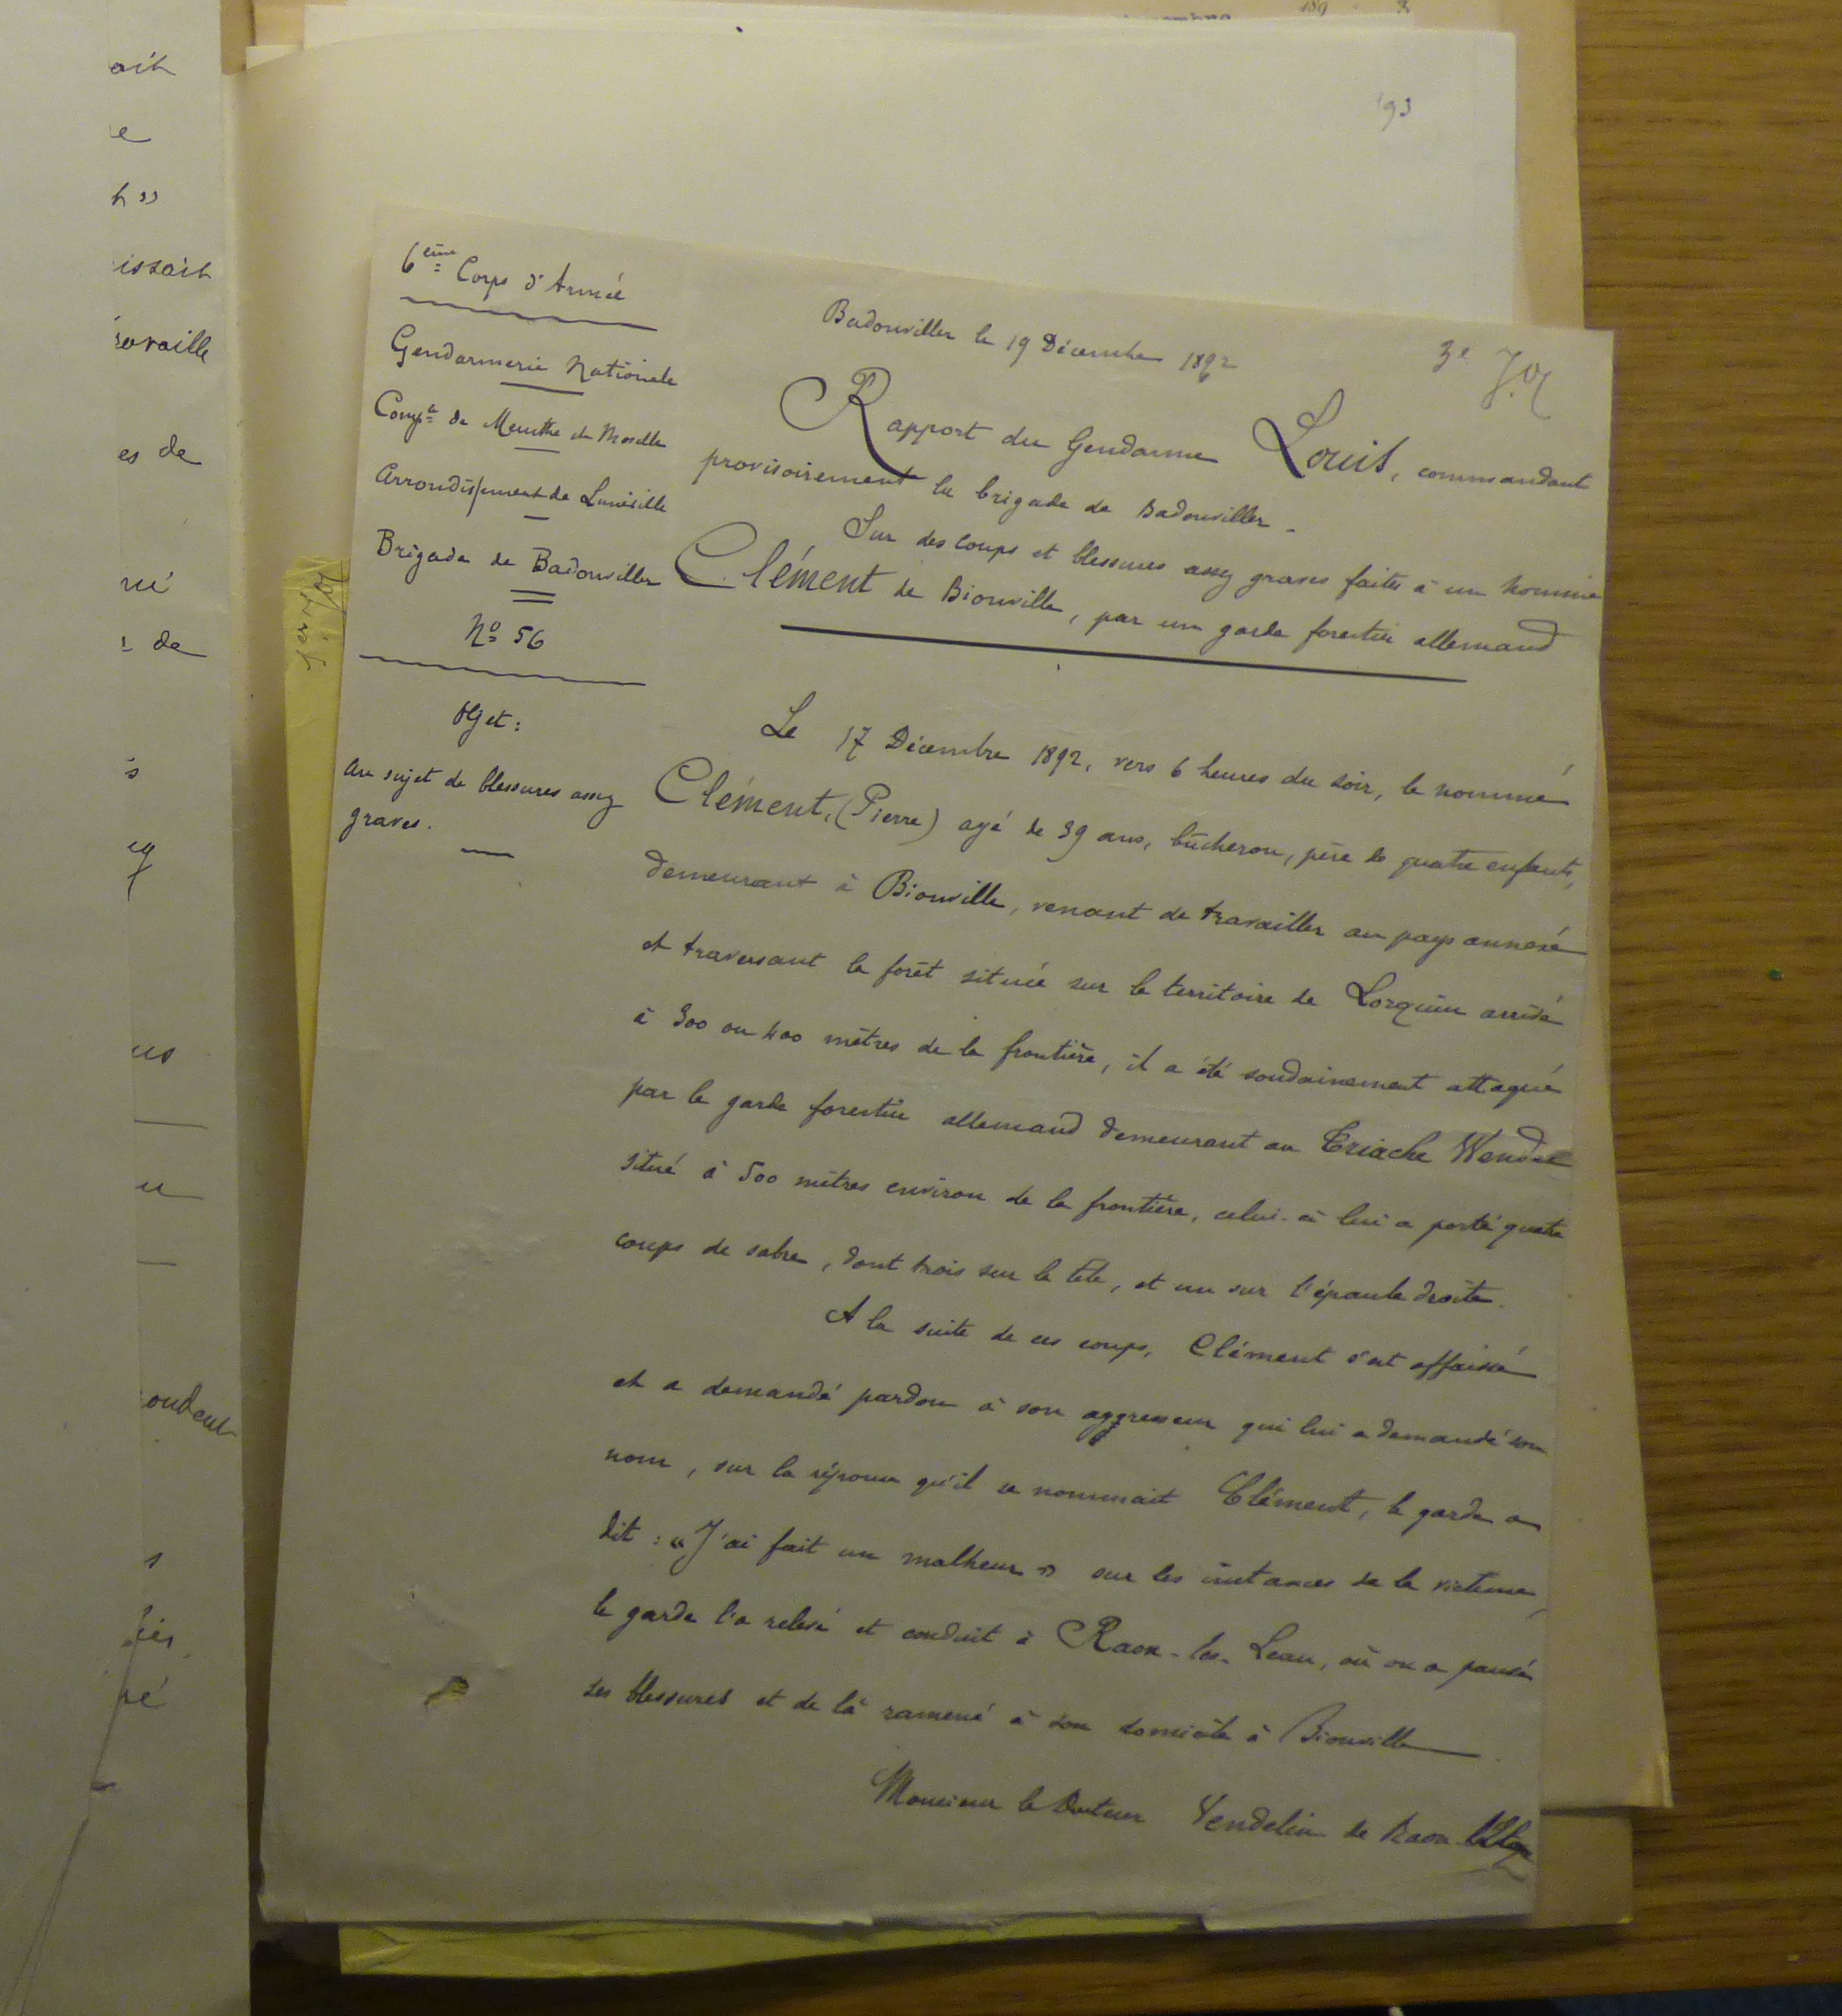 ait
e
h »
issait
availle
es de
né
de
s
ns
ondent
né
193
6ème Corps d'Armée
Gendarmerie Nationale
Compie de Meurthe et Moselle
Arrondissement de Lunéville
Brigade de Badonviller
No 56
Objet :
Au sujet de blessures assez
graves.
Badonviller le 19 Décembre 1892
3e
Rapport du Gendarme Louis, commandant
provisoirement la brigade de Badonviller -
Sur des coups et blessures assez graves faites à un nommé
Clément de Bionville, par un garde forestier allemand
Le 17 Décembre 1892, vers 6 heures du soir, le nommé
Clément, (Pierre) agé de 39 ans, bûcheron, père de quatre enfants,
demeurant à Bionville, venant de travailler au pays annexé
et traversant la forêt située sur le territoire de Lorquin arrivé
à 300 ou 400 mètres de la frontière, il a été soudainement attaqué
par le garde forestier allemand demeurant au Triache Wendel
situé à 500 mètres environ de la frontière, celui-ci lui a porté quatre
coups de sabre, dont trois sur la tête, et un sur l'épaule droite.
A la suite de ces coups, Clément s'est affaissé
et a demandé pardon à son aggresseur qui lui a demandé son
nom, sur la réponse qu'il se nommait Clément, le garde a
dit : « J'ai fait un malheur » sur les instances de la victime,
le garde l'a relevé et conduit à Raon-les-Leau, où on a pansé
ses blessures et de là ramené à son domicile à Bionville.
Monsieur le Docteur Vendelin de Raon l'Etape